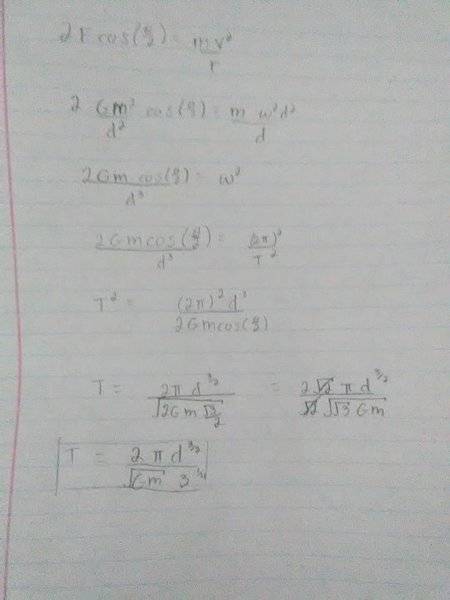 2F cos(α/2) = mv²/r
2 Gm²/d² cos(α/2) = m w²d²/d
2Gm cos(α/2)/d³ = w²
2Gm cos(α/2)/d³ = (2π)²/T²
T² = (2π)² d³/2Gm cos(α/2)
T = 2π d^3/2/√(2Gm √3/2) = 2√2 π d^3/2/√2 √(√3 Gm)
T = 2π d^3/2/√Gm 3^1/4